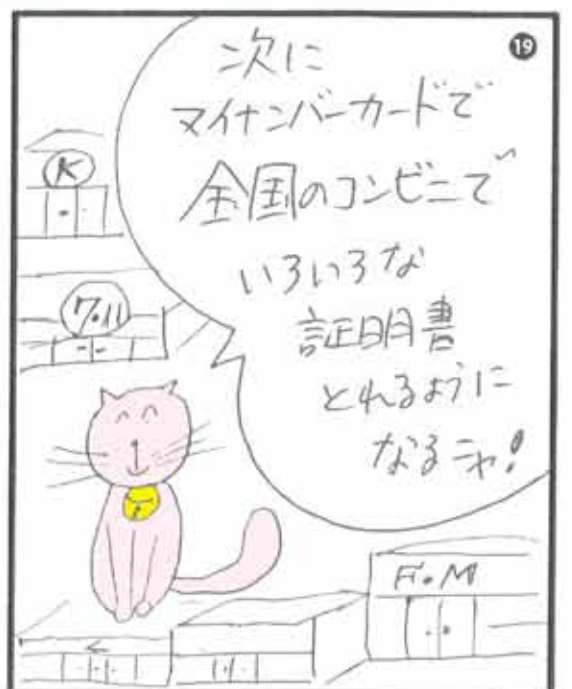 19
次に
マイナンバーカードで
全国のコンビニで
いろいろな
証明書
とれるように
なるニャ!
K
7.11
F.M